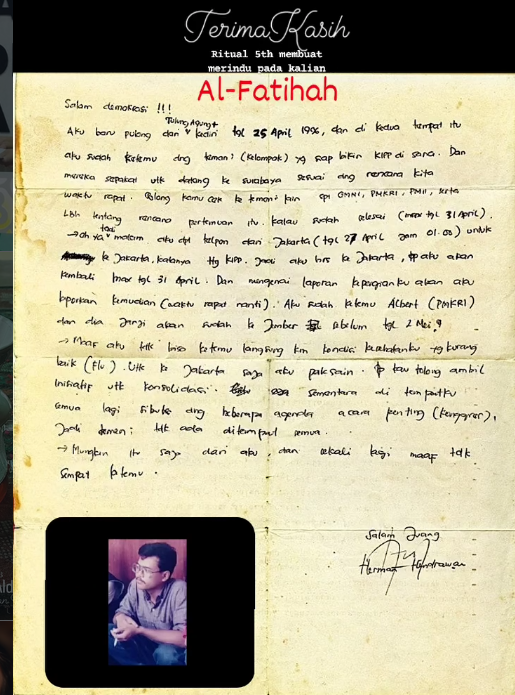 Terima Kasih
Ritual 5th membuat
merindu pada kalian
Al-Fatihah
Salam demokrasi !!!
Tulung Agung +
Aku baru pulang dari kediri tgl 25 April 1996, dan di kedua tempat itu
aku sudah ketemu dng teman2 (kelompok) yg siap bikin KIPP di sana. Dan
mereka sepakat utk datang ke surabaya sesuai dng rencana kita
waktu rapat. Tolong kamu cek ke teman2 lain spt GMNI, PMKRI, PMII, serta
LBH tentang rencana pertemuan itu. kalau sudah selesai (max tgl 31 April).
→ Oh ya tadi malam aku dpt telpon dari Jakarta (tgl 27 April jam 01.00) untuk
ke Jakarta, katanya ttg KIPP. Jadi aku hrs ke Jakarta, tp aku akan
kembali max tgl 31 April. Dan mengenai laporan kepergianku akan aku
laporkan kemudian (waktu rapat nanti). Aku sudah ketemu Albert (PMKRI)
dan dia janji akan sudah ke Jember sebelum tgl 2 Mei 9
→ Maaf aku tdk bisa ketemu langsung krn kondisi kesehatanku yg kurang
baik (Flu). Utk ke Jakarta saja aku paksain. Tp kau tolong ambil
Inisiatif utk konsolidasi. sementara di tempatku
semua lagi sibuk dng beberapa agenda acara penting (kongres),
Jadi temen2 tdk ada ditempat semua.
→ Mungkin itu saja dari aku, dan sekali lagi maaf tdk
sempat ketemu.
Salam Juang
Herman Hendrawan